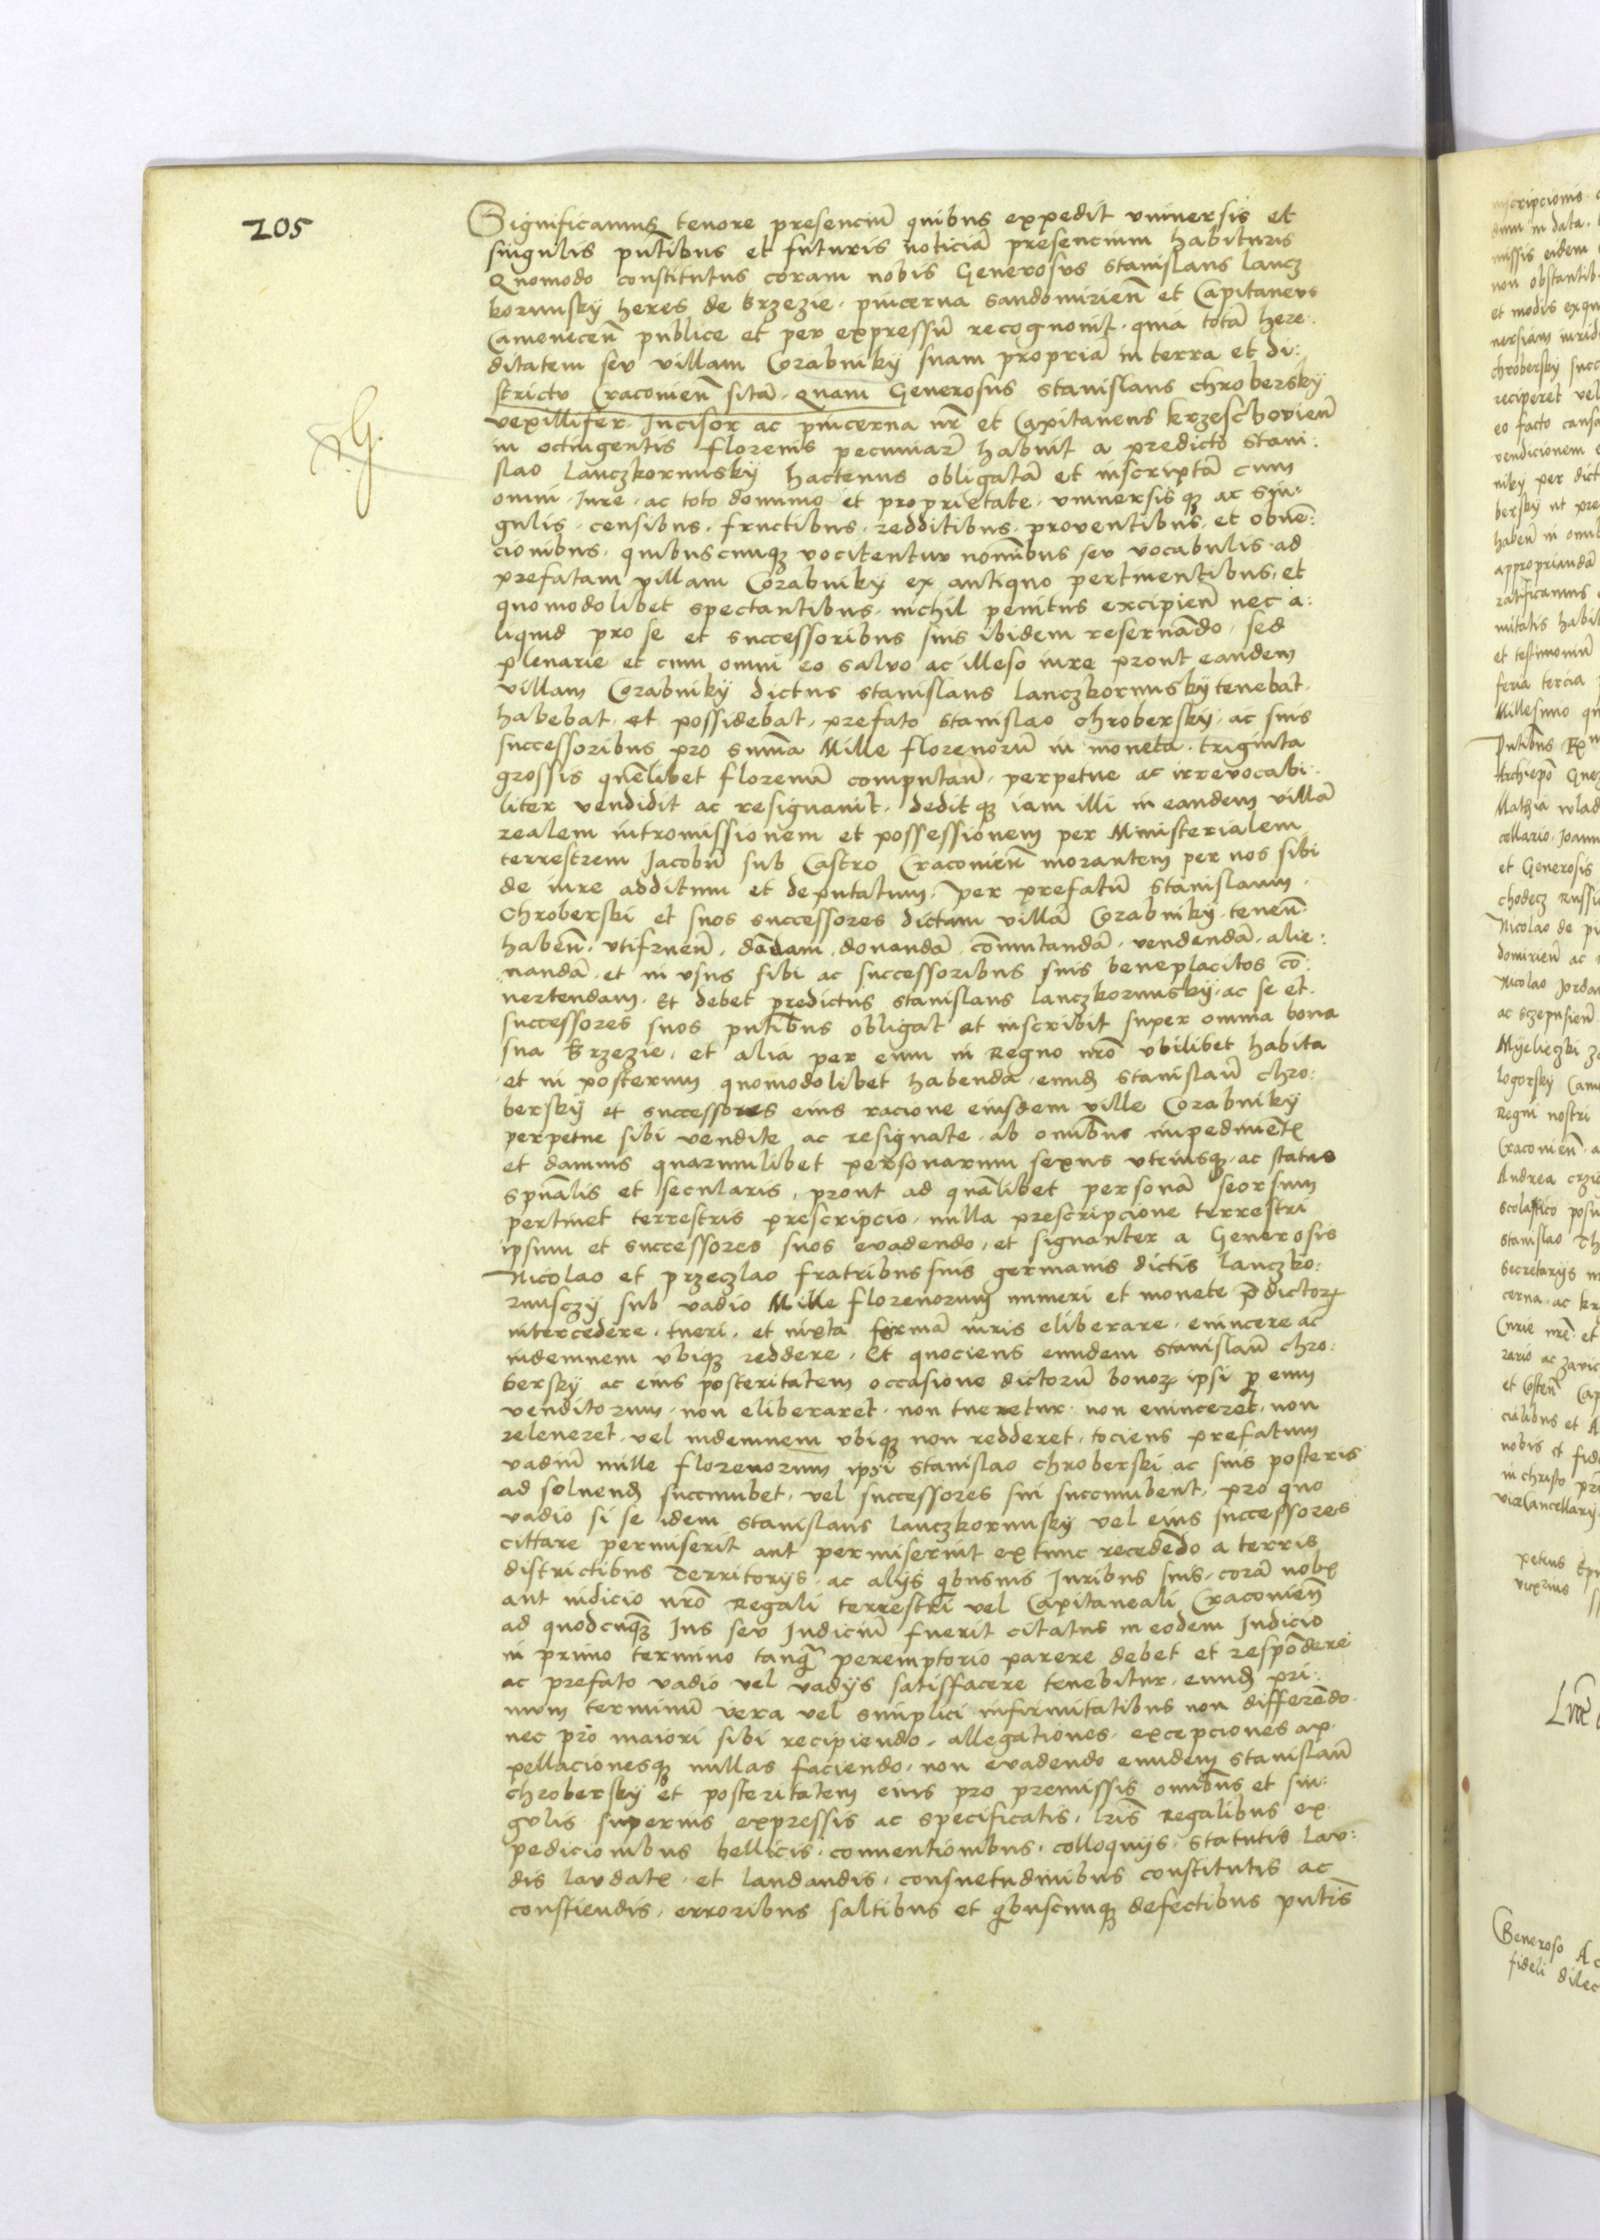 205
Significamus tenore presenciũ quibus expedit universis et
singulis pñtibus et futuris noticiã presencium habituris
Quomodo constitutus coram nobis Generosus Stanislaus lancz
korunsky heres de Brzezie. pincerna Sandomirieñ et Capitaneus
Cameneceñ publice et per expressũ recognovit. quia totã here:
ditatem seu villam Grabniky suam propriã in terra et di:
strictu Cracovieñ sitã. quam Generosus Stanislaus chrobersky
vexillifer. Incisor ac pincerna nr̃ et Capitaneus krzeschovieñ
in octingentis florenis pecuniar̃ habuit a predicto Stani:
slao lanczkorunsky hactenus obligatã et inscriptã cum
omni. Iure. ac toto dominio et proprietate. universisqꝫ ac sin:
gulis. censibus. fructibus. redditibus. proventibus. et obvẽ:
cionibus. quibuscunqꝫ vocitentur nomĩbus seu vocabulis ad
prefatam villam Grabniky ex antiquo pertinentibus. et
quomodolibet spectantibus. nichil penitus excipieñ nec a:
liquid pro se et successoribus suis ibidem reservãdo. sed
plenarie et cum omni eo salvo ac illeso iure prout eandem
villam Grabniky dictus Stanislaus lanczkorunsky tenebat.
habebat. et possidebat. prefato Stanislao chrobersky. ac suis
successoribus pro sum̃a Mille florenorũ in moneta. triginta
grossis quẽlibet florenũ computañ. perpetue ac irrevocabi:
liter vendidit ac resignavit. deditqꝫ iam illi in eandem villã
realem intromissionem et possessionem per Ministerialem
terrestrem Jacobũ sub Castro Cracovieñ morantem per nos sibi
de iure additum et deputatum. per prefatũ Stanislaum.
Chroberski et suos successores dictam villã Grabniky. teneñ
habeñ. utifrueñ. dãdam. donandã. com̃utandã. vendendã. alie:
nandã. et in usus sibi ac successoribus suis beneplacitos cõ:
vertendam. Et debet predictus Stanislaus lanczkorunsky. ac se et
successores suos pñtibus obligat et inscribit super omnia bona
sua Brzezie. et alia per eum in Regno nr̃o ubilibet habita
et in posterum quomodolibet habenda. eundꝫ Stanislaũ chro:
bersky et successores eius racione eiusdem ville Grabniky
perpetue sibi vendite ac resignate. ab om̃ibus impedimẽtꝭ
et damnis quarumlibet personarum sexus utriusqꝫ. ac status
spũalis et secularis. prout ad quãlibet personã seorsum
pertinet terrestris prescripcio. nulla prescripcione terrestri
ipsum et successores suos evadendo. et signanter a Generosis
Nicolao et przeczlao fratribus suis germanis dictis lanczko:
runsczy sub vadio Mille florenorum numeri et monete p̃dictorꝝ
intercedere. tueri. et iuxta formã iuris eliberare. evincere ac
indemnem ubiqꝫ reddere. Et quociens eundem Stanislaũ chro:
bersky ac eius posteritatem occasione dictorũ bonorꝝ ipsi ꝑ eum
venditorum. non eliberaret. non tueretur. non evinceret. non
relevaret. vel indemnem ubiqꝫ non redderet. tociens prefatum
vadiũ mille florenorum ipsi Stanislao chroberski ac suis posteris
ad solvendꝫ succumbet. vel successores sui succumbent. pro quo
vadio si se idem Stanislaus lanczkorunsky vel eius successores
cittare permiserit aut permiserint extunc recedẽdo a terris
districtibus Territorys. ac alys qͥbusvis Iuribus suis. corã nobꝭ
aut iudicio nr̃o Regali terrestri vel Capitaneali Cracovieñ
ad quodcũqꝫ Ius seu Iudiciũ fuerit citatus in eodem Iudicio
in primo termino tanqͣ̃ peremptorio parere debet et respõdere
ac prefato vadio vel vadys satisfacere tenebitur. eundꝫ pri:
mum terminũ vera vel simplici infirmitatibus non differẽdo.
nec pro maiori sibi recipiendo. allegationes. excepciones ap:
pellacionesqꝫ nullas faciendo. non evadendo eundem Stanislaũ
chrobersky et posteritatem eius pro premissis om̃ibus et sin:
gulis superius expressis ac specificatis. lr̃is Regalibus ex:
pedicionibus bellicis. conventionibus. colloquys. statutis lau:
dis laudatꝭ. et laudandis. consuetudinibus constitutis ac
constiendis. erroribus saltibus et qͥbuscunqꝫ defectibus pñtis